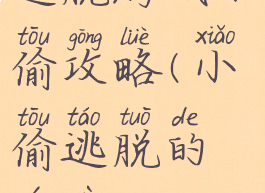 tōu gōng lüè xiǎo
偷攻略(小
tōu táo tuō de
偷逃脱的